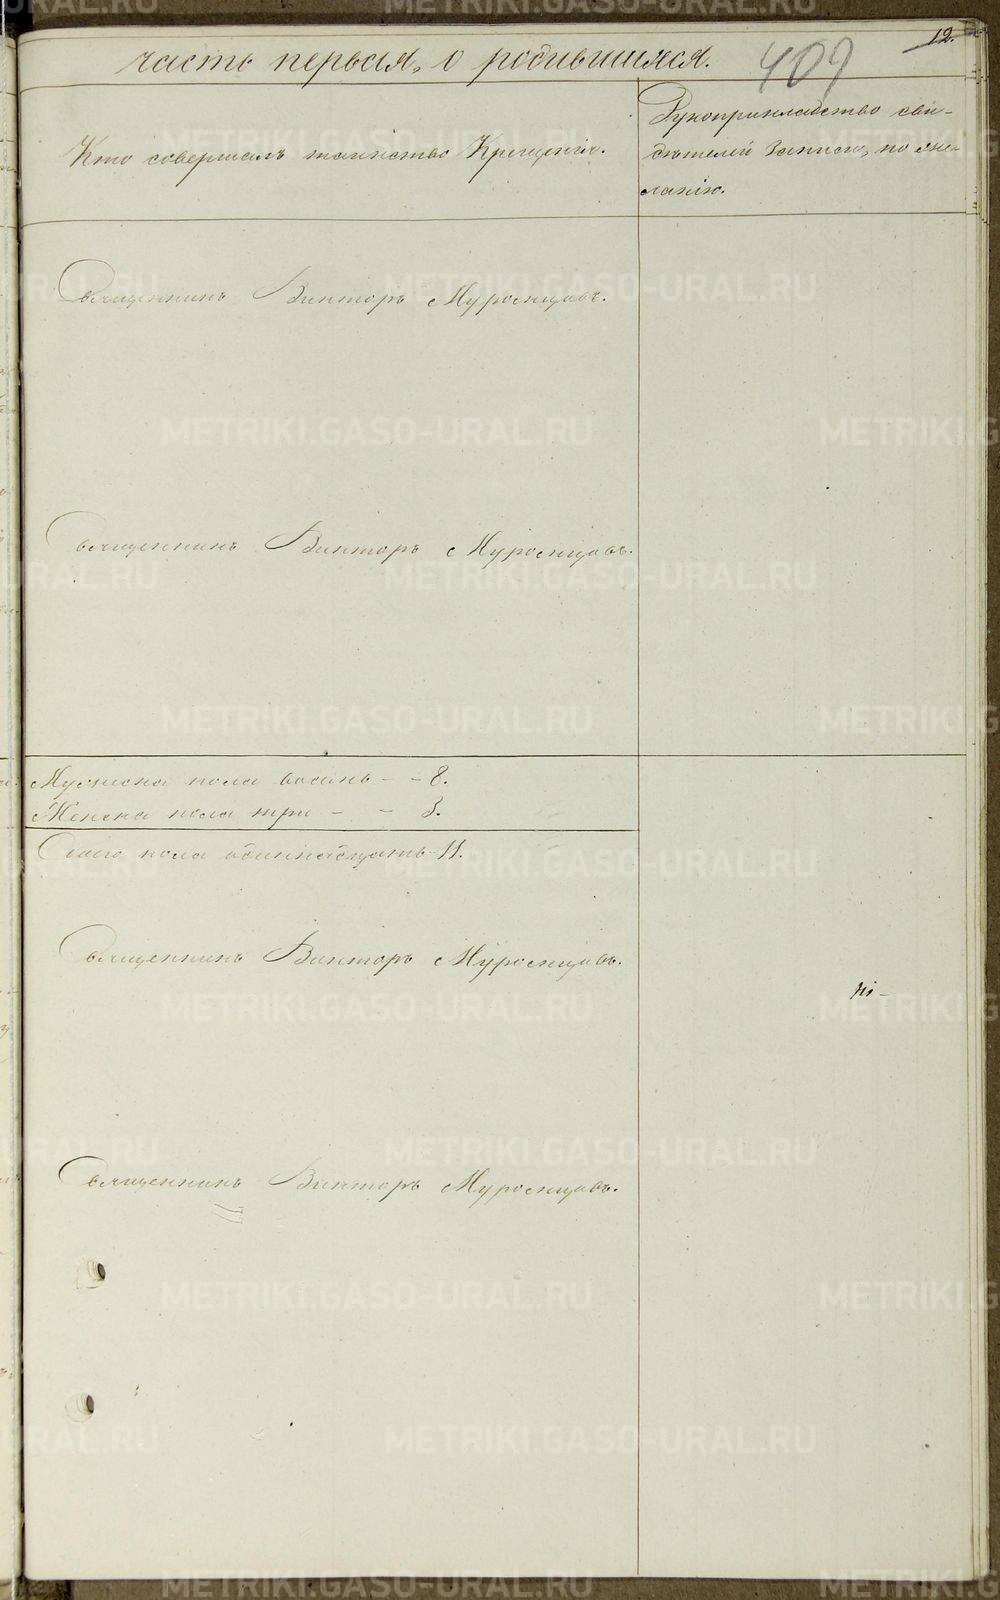 12.
часть первая, о родившихся.
409
Кто совершалъ таинство Крещенія.
Рукоприкладство сви-
дѣтелей записи, по же-
ланію.
Священникъ Викторъ Муромцовъ.
Священникъ Викторъ Муромцовъ.
Мужеска пола восемь - - 8.
Женска пола три - - 3.
Обоего пола одиннадцать 11.
Священникъ Викторъ Муромцовъ.
Священникъ Викторъ Муромцовъ.
METRIKI.GASO-URAL.RU